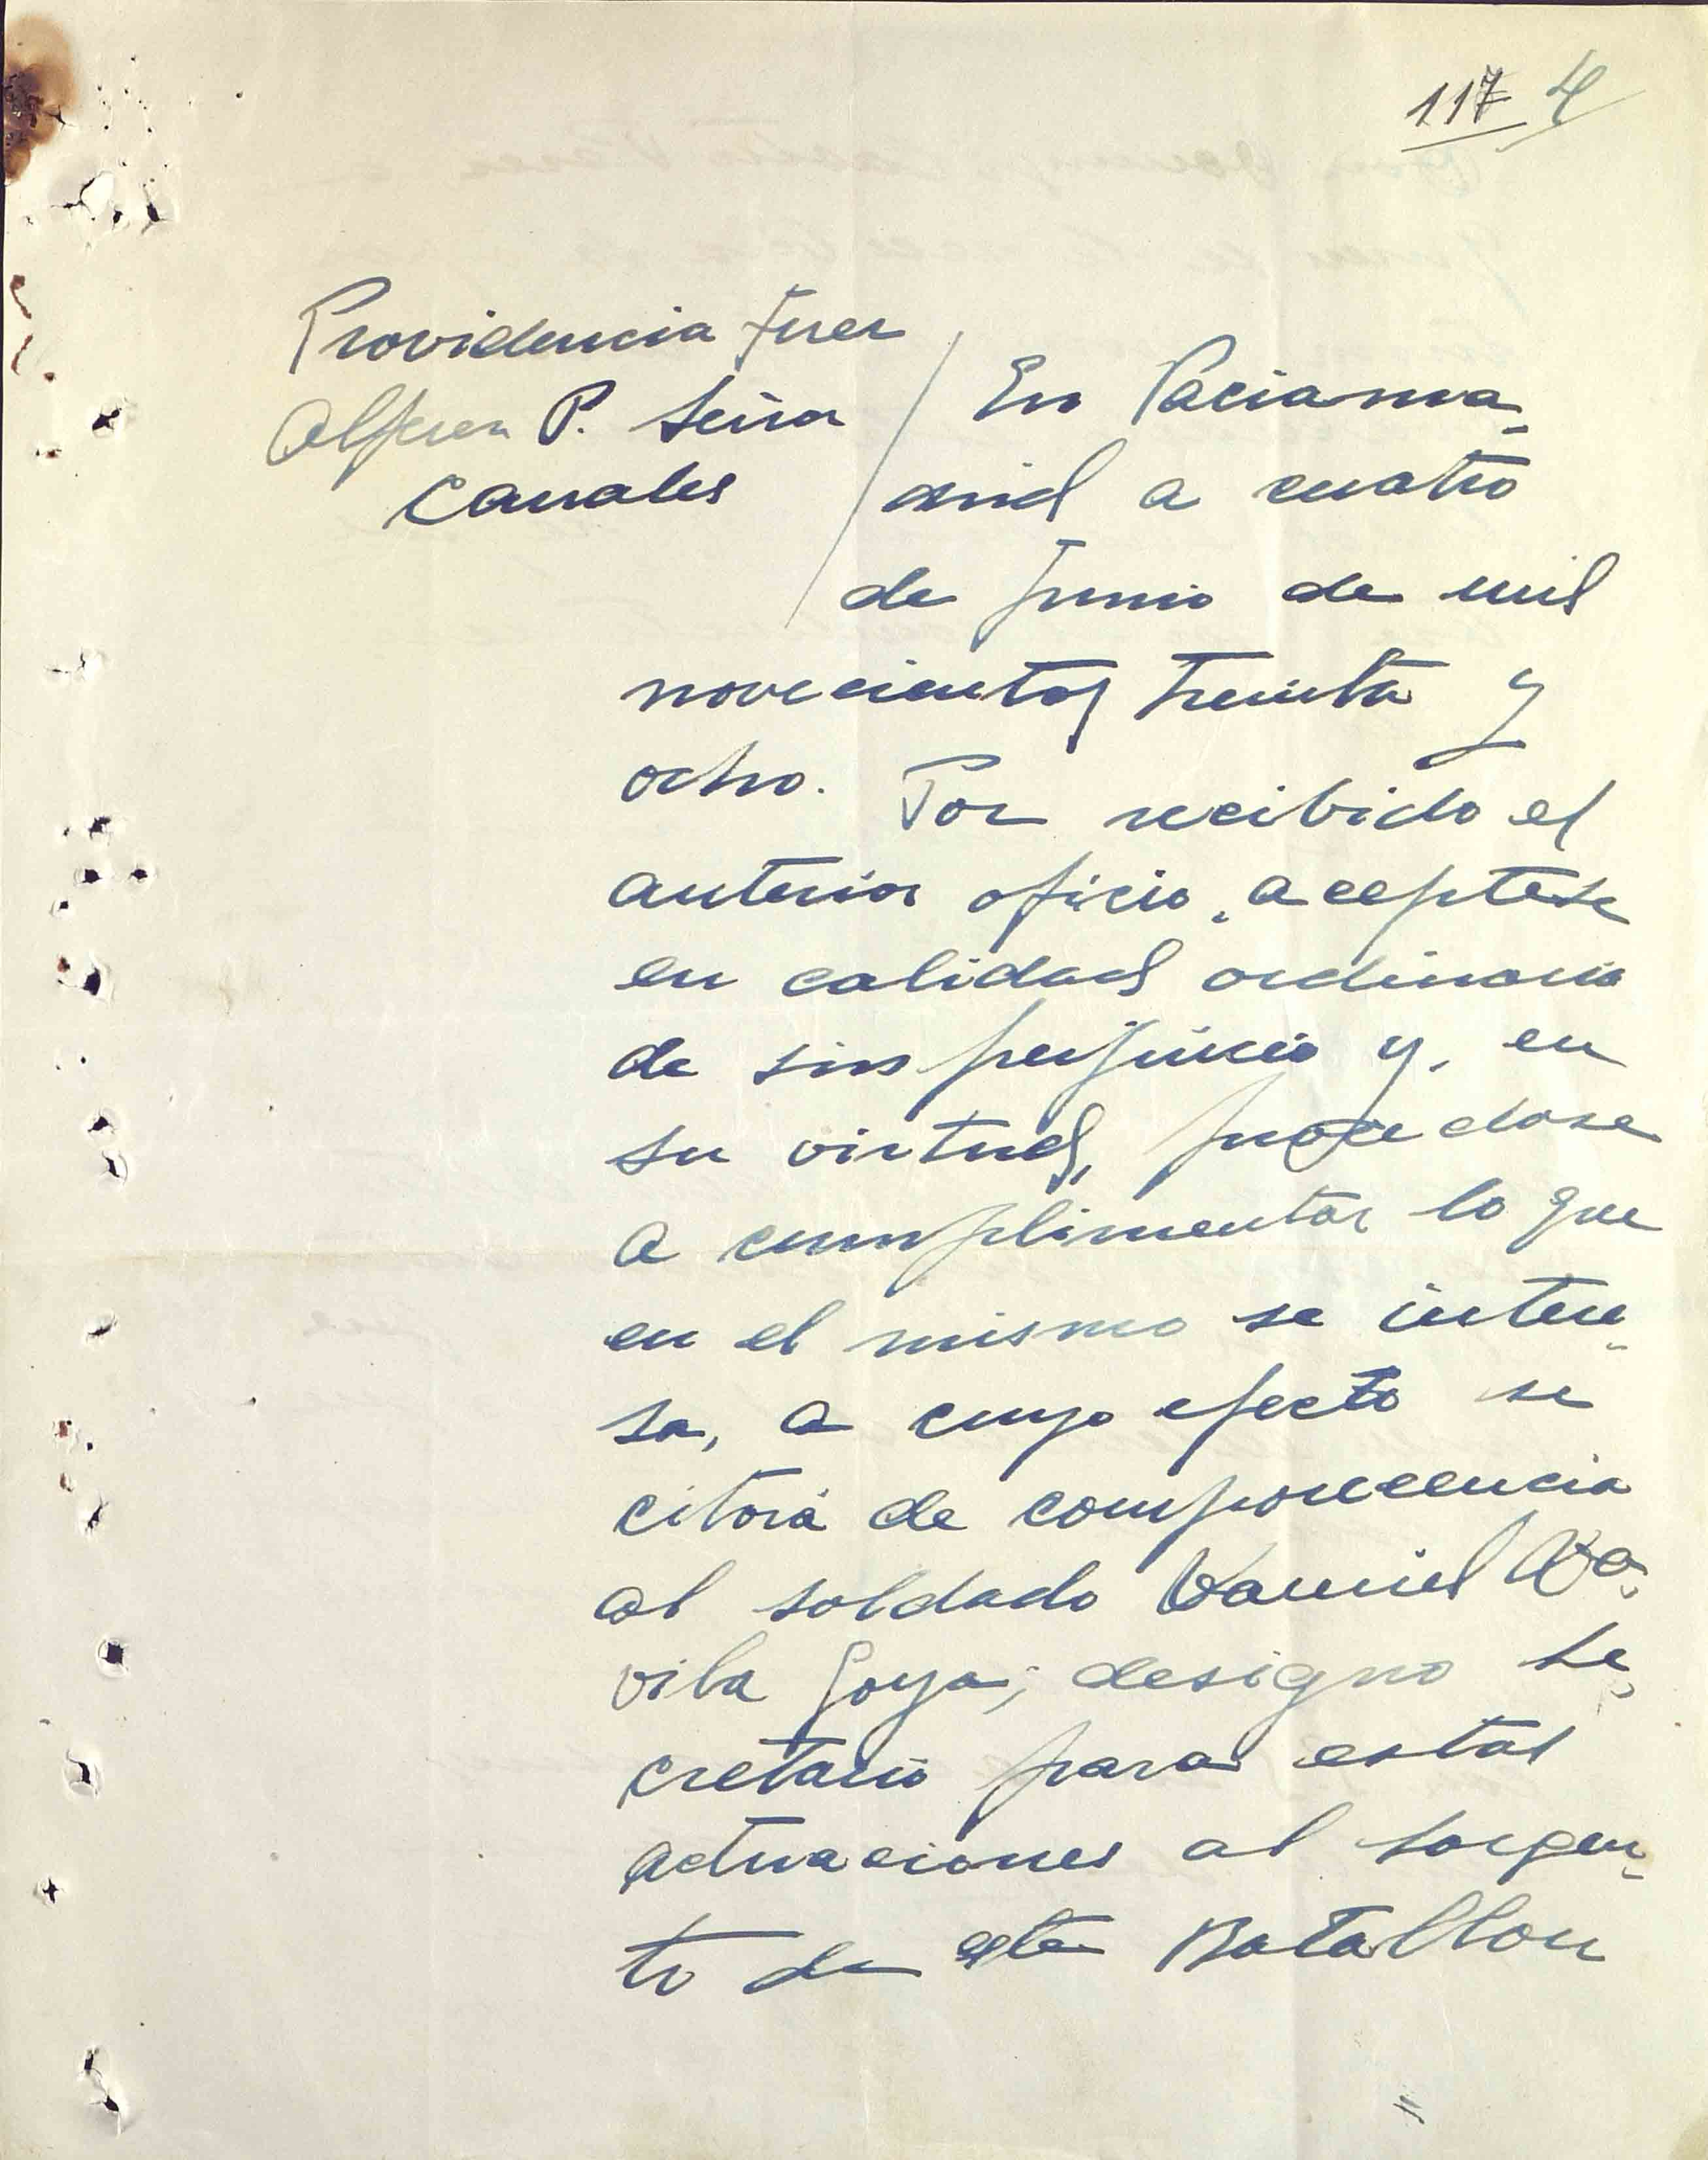 117 4
Providencia Juez
Alferez P. Seira
Canales
En Paciama-
drid a cuatro
de Junio de mil
novecientos treinta y
ocho. Por recibido el
anterior oficio, aceptese
en calidad ordinaria
de sin perjuicio y, en
su virtud, procedase
a cumplimentar lo que
en el mismo se intere-
sa, a cuyo efecto se
citará de comparecencia
al soldado Daniel
vila Goya; designo Se-
cretario para estas
actuaciones al sargen-
to de este Batallon